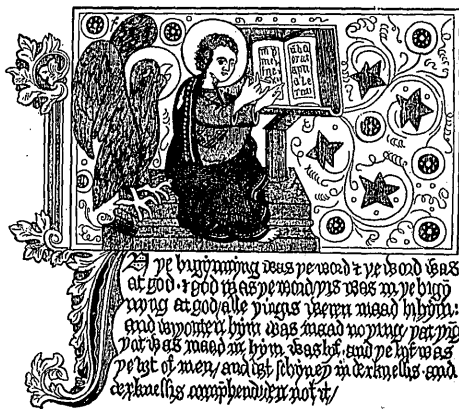 IN ye bigynnyng was ye word & ye word was
at god · & god was ye word / yis was in ye bigyn
nyng at god / alle yingis weren maad bi hym:
and wiyouten hym was maad no ying / yat ying
yat was maad in hym was lyf · and ye lyf was
ye liȝt of men / and liȝt schyney in derknessis · and
derknessis comprehendiden not it /